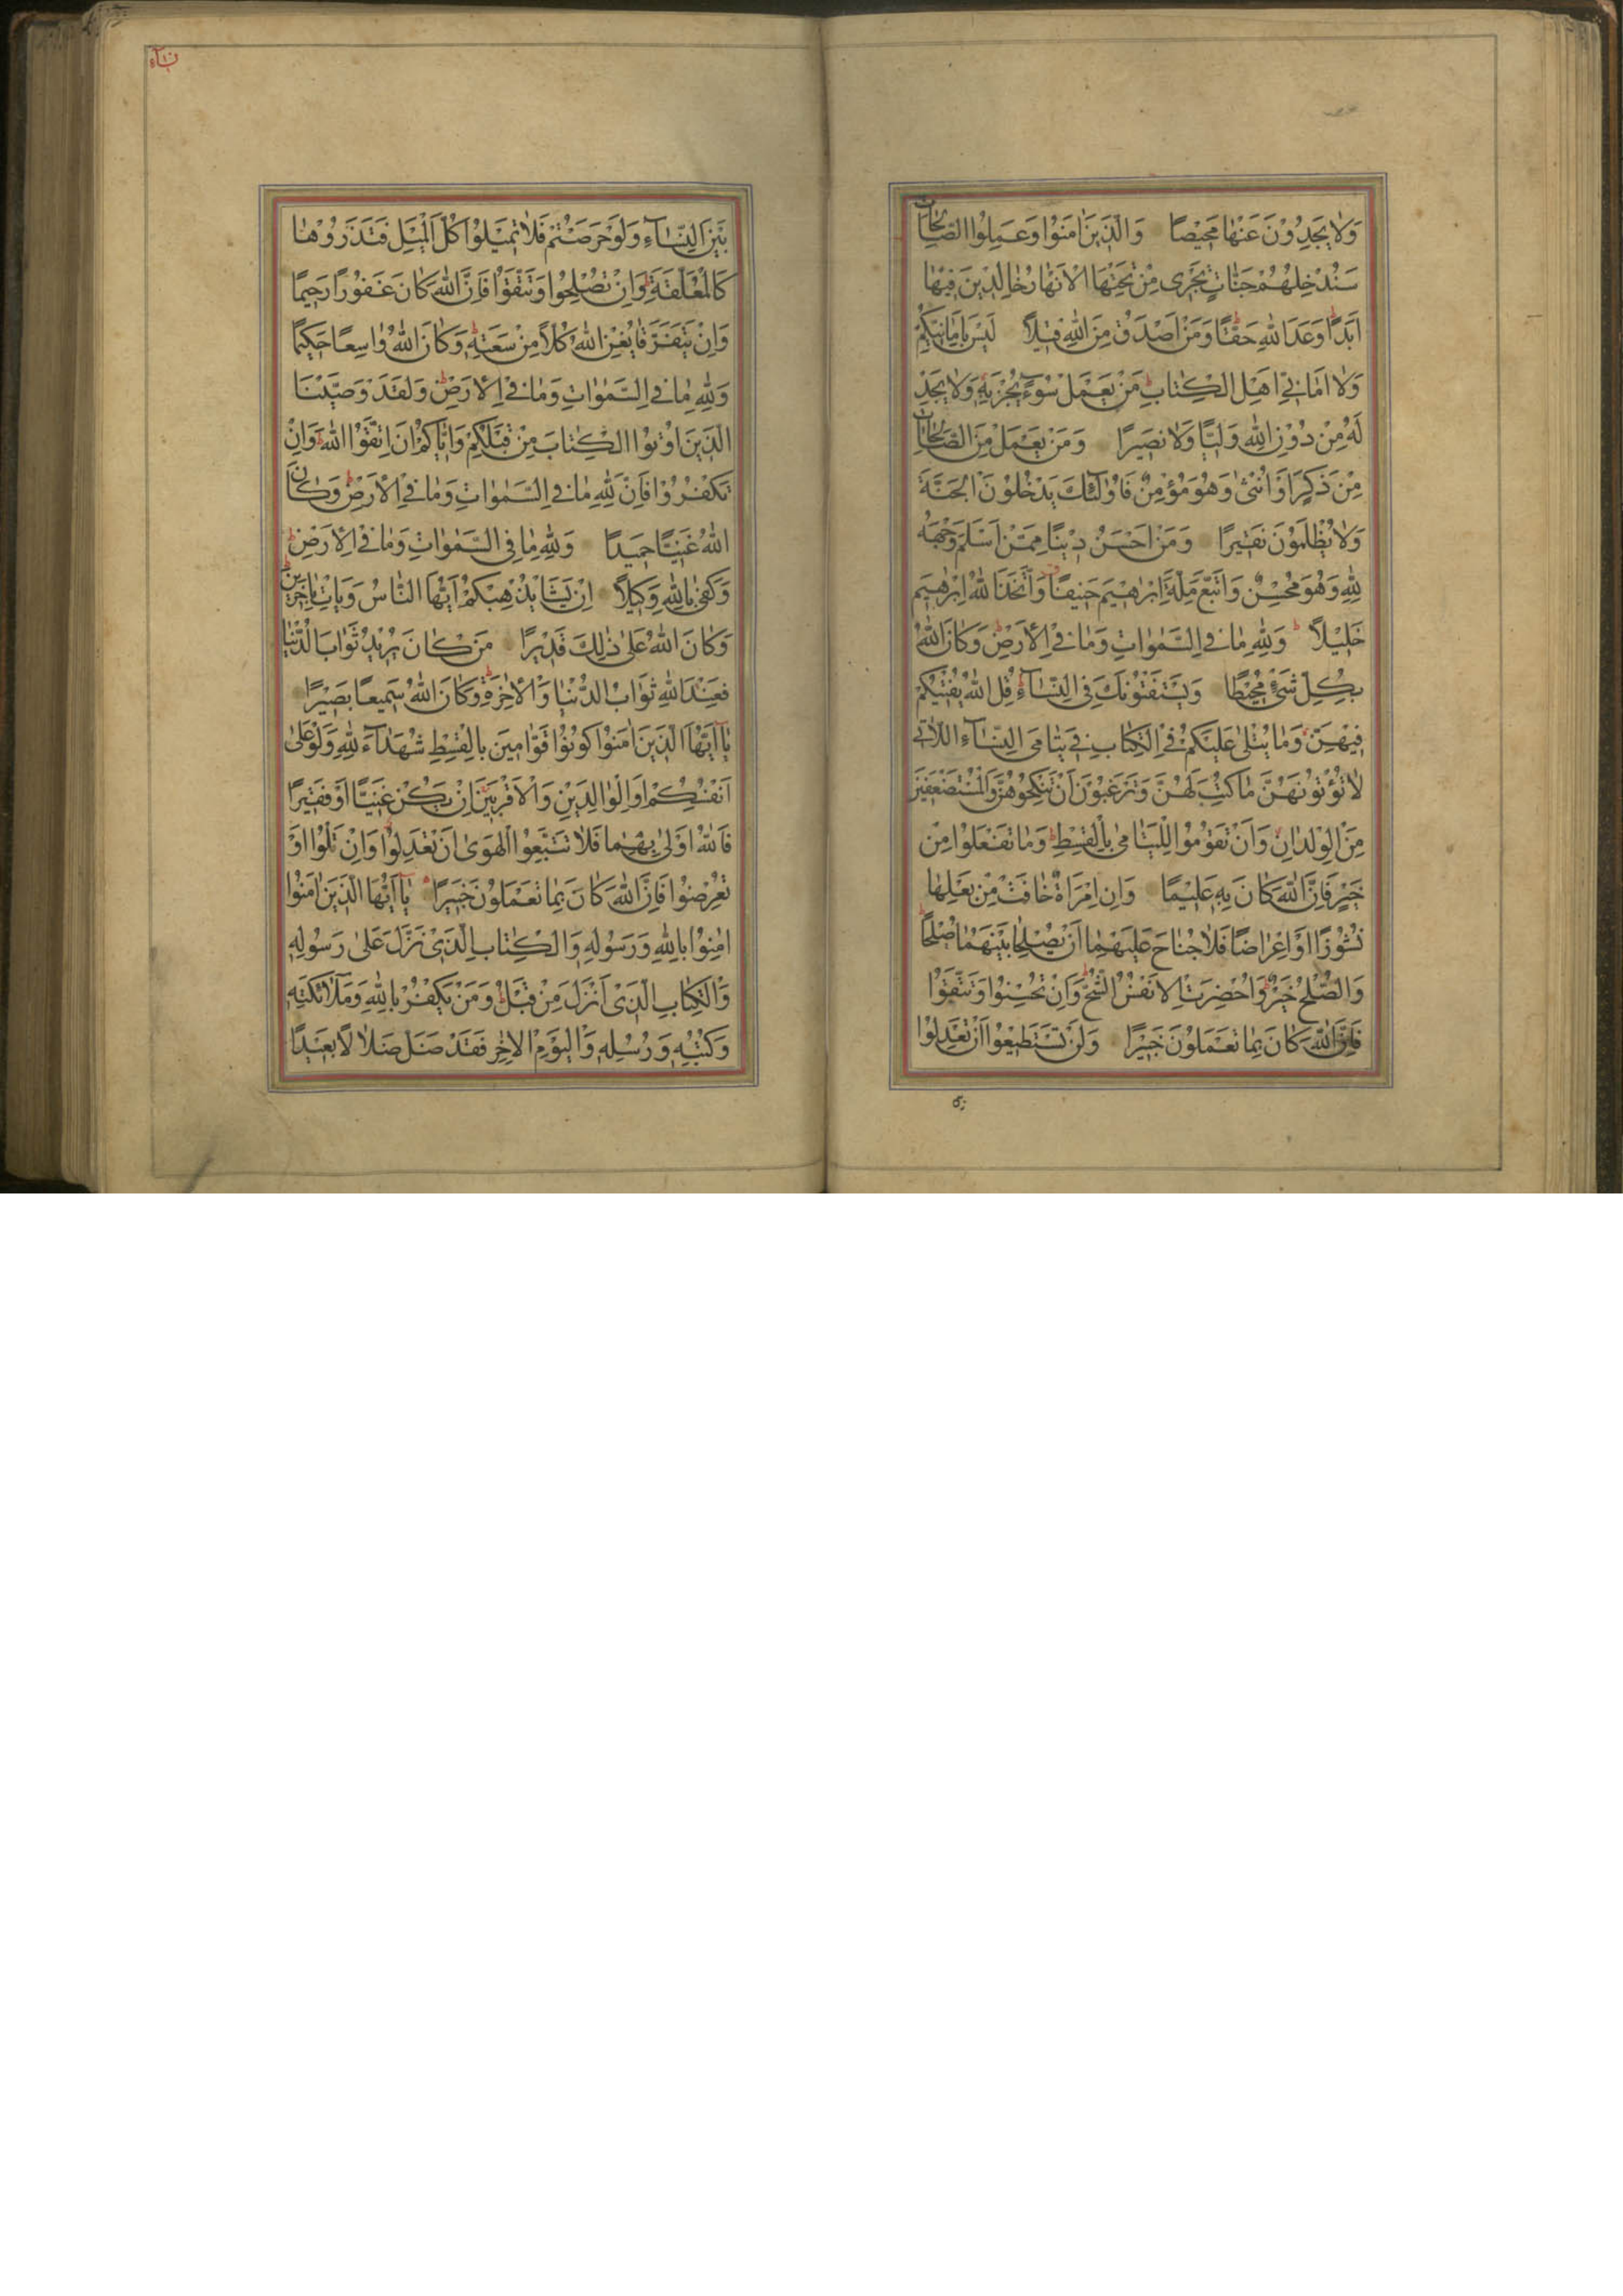 وَلَا يَجِدُونَ عَنْهَا مَحِيصًا وَالَّذِينَ اٰمَنُوا وَعَمِلُوا الصَّالِحَاتِ
سَنُدْخِلُهُمْ جَنَّاتٍ تَجْرِى مِنْ تَحْتِهَا الْاَنْهَارُ خَالِدِينَ فِيهَا
اَبَدًا وَعْدَ اللّٰهِ حَقًّا وَمَنْ اَصْدَقُ مِنَ اللّٰهِ قِيلًا لَيْسَ بِاَمَانِيِّكُمْ
وَلَا اَمَانِيِّ اَهْلِ الْكِتَابِ مَنْ يَعْمَلْ سُوءًا يُجْزَ بِهِ وَلَا يَجِدْ
لَهُ مِنْ دُونِ اللّٰهِ وَلِيًّا وَلَا نَصِيرًا وَمَنْ يَعْمَلْ مِنَ الصَّالِحَاتِ
مِنْ ذَكَرٍ اَوْ اُنْثٰى وَهُوَ مُؤْمِنٌ فَاُولٰئِكَ يَدْخُلُونَ الْجَنَّةَ
وَلَا يُظْلَمُونَ نَقِيرًا وَمَنْ اَحْسَنُ دِينًا مِمَّنْ اَسْلَمَ وَجْهَهُ
لِلّٰهِ وَهُوَ مُحْسِنٌ وَاتَّبَعَ مِلَّةَ اِبْرٰهِيمَ حَنِيفًا وَاتَّخَذَ اللّٰهُ اِبْرٰهِيمَ
خَلِيلًا وَلِلّٰهِ مَا فِي السَّمٰوَاتِ وَمَا فِي الْاَرْضِ وَكَانَ اللّٰهُ
بِكُلِّ شَيْءٍ مُحِيطًا وَيَسْتَفْتُونَكَ فِي النِّسَآءِ قُلِ اللّٰهُ يُفْتِيكُمْ
فِيهِنَّ وَمَا يُتْلٰى عَلَيْكُمْ فِي الْكِتَابِ فِي يَتَامَى النِّسَآءِ اللَّاتِي
لَا تُؤْتُونَهُنَّ مَا كُتِبَ لَهُنَّ وَتَرْغَبُونَ اَنْ تَنْكِحُوهُنَّ وَالْمُسْتَضْعَفِينَ
مِنَ الْوِلْدَانِ وَاَنْ تَقُومُوا لِلْيَتَامٰى بِالْقِسْطِ وَمَا تَفْعَلُوا مِنْ
خَيْرٍ فَاِنَّ اللّٰهَ كَانَ بِهِ عَلِيمًا وَاِنِ امْرَاَةٌ خَافَتْ مِنْ بَعْلِهَا
نُشُوزًا اَوْ اِعْرَاضًا فَلَا جُنَاحَ عَلَيْهِمَا اَنْ يُصْلِحَا بَيْنَهُمَا صُلْحًا
وَالصُّلْحُ خَيْرٌ وَاُحْضِرَتِ الْاَنْفُسُ الشُّحَّ وَاِنْ تُحْسِنُوا وَتَتَّقُوا
فَاِنَّ اللّٰهَ كَانَ بِمَا تَعْمَلُونَ خَبِيرًا وَلَنْ تَسْتَطِيعُوا اَنْ تَعْدِلُوا
بَيْنَ النِّسَآءِ وَلَوْ حَرَصْتُمْ فَلَا تَمِيلُوا كُلَّ الْمَيْلِ فَتَذَرُوهَا
كَالْمُعَلَّقَةِ وَاِنْ تُصْلِحُوا وَتَتَّقُوا فَاِنَّ اللّٰهَ كَانَ غَفُورًا رَحِيمًا
وَاِنْ يَتَفَرَّقَا يُغْنِ اللّٰهُ كُلًّا مِنْ سَعَتِهِ وَكَانَ اللّٰهُ وَاسِعًا حَكِيمًا
وَلِلّٰهِ مَا فِي السَّمٰوَاتِ وَمَا فِي الْاَرْضِ وَلَقَدْ وَصَّيْنَا
الَّذِينَ اُوتُوا الْكِتَابَ مِنْ قَبْلِكُمْ وَاِيَّاكُمْ اَنِ اتَّقُوا اللّٰهَ وَاِنْ
تَكْفُرُوا فَاِنَّ لِلّٰهِ مَا فِي السَّمٰوَاتِ وَمَا فِي الْاَرْضِ وَكَانَ
اللّٰهُ غَنِيًّا حَمِيدًا وَلِلّٰهِ مَا فِي السَّمٰوَاتِ وَمَا فِي الْاَرْضِ
وَكَفٰى بِاللّٰهِ وَكِيلًا اِنْ يَشَأْ يُذْهِبْكُمْ اَيُّهَا النَّاسُ وَيَأْتِ بِاٰخَرِينَ
وَكَانَ اللّٰهُ عَلٰى ذٰلِكَ قَدِيرًا مَنْ كَانَ يُرِيدُ ثَوَابَ الدُّنْيَا
فَعِنْدَ اللّٰهِ ثَوَابُ الدُّنْيَا وَالْاٰخِرَةِ وَكَانَ اللّٰهُ سَمِيعًا بَصِيرًا
يَآ اَيُّهَا الَّذِينَ اٰمَنُوا كُونُوا قَوَّامِينَ بِالْقِسْطِ شُهَدَآءَ لِلّٰهِ وَلَوْ عَلٰى
اَنْفُسِكُمْ اَوِ الْوَالِدَيْنِ وَالْاَقْرَبِينَ اِنْ يَكُنْ غَنِيًّا اَوْ فَقِيرًا
فَاللّٰهُ اَوْلٰى بِهِمَا فَلَا تَتَّبِعُوا الْهَوٰى اَنْ تَعْدِلُوا وَاِنْ تَلْوُوا اَوْ
تُعْرِضُوا فَاِنَّ اللّٰهَ كَانَ بِمَا تَعْمَلُونَ خَبِيرًا يَآ اَيُّهَا الَّذِينَ اٰمَنُوا
اٰمِنُوا بِاللّٰهِ وَرَسُولِهِ وَالْكِتَابِ الَّذِي نَزَّلَ عَلٰى رَسُولِهِ
وَالْكِتَابِ الَّذِي اَنْزَلَ مِنْ قَبْلُ وَمَنْ يَكْفُرْ بِاللّٰهِ وَمَلٰٓائِكَتِهِ
وَكُتُبِهِ وَرُسُلِهِ وَالْيَوْمِ الْاٰخِرِ فَقَدْ ضَلَّ ضَلَالًا بَعِيدًا